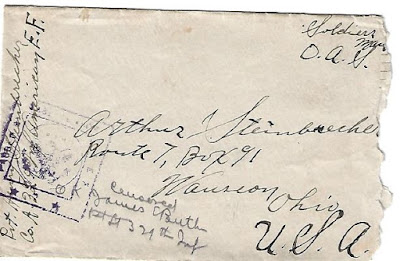 Soldiers
Mail
O. A. S.
Arthur Steinbrecher
Route 7, Box 91
Wauseon,
Ohio
U. S. A.
Censored
James E Buth
1st Lt 329th Inf
Pvt Steinbrecher
Co. A American E. F.